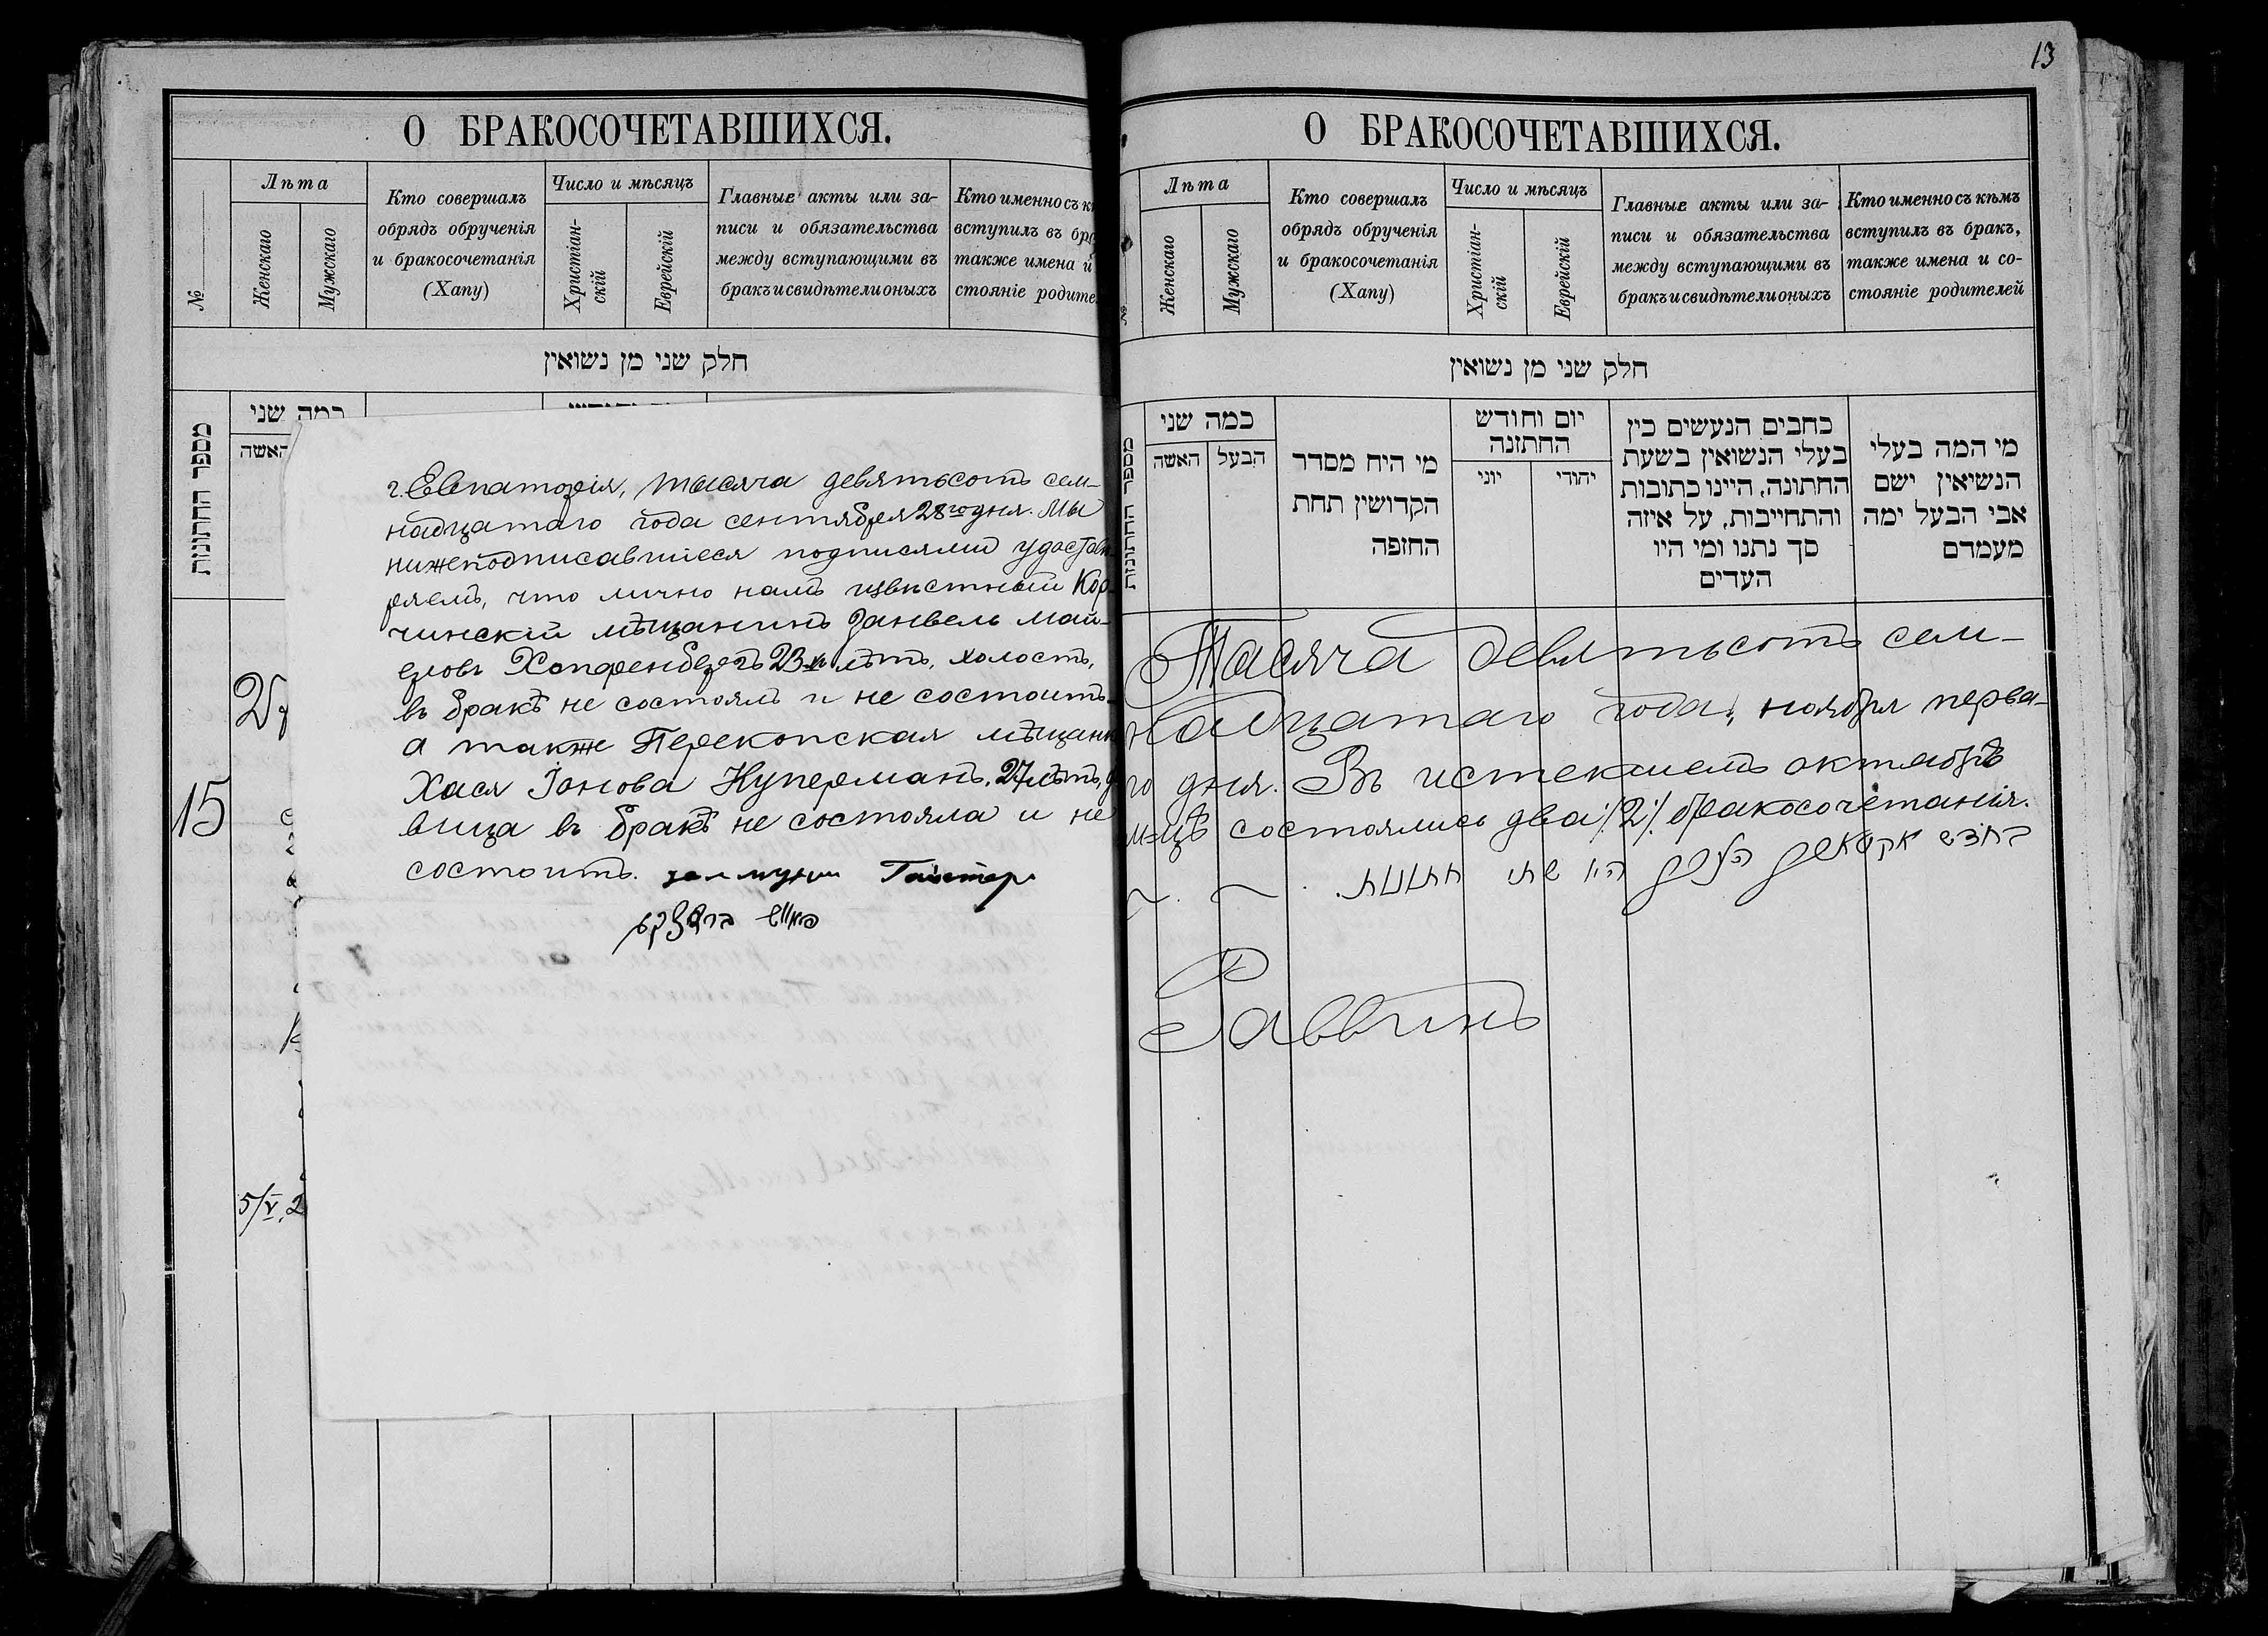 О БРАКОСОЧЕТАВШИХСЯ.
№
Лѣта
Женскаго
Мужскаго
Кто совершалъ
обрядъ обрученія
и бракосочетанія
(Хапу)
Число и мѣсяцъ
Христіан-
скій
Еврейскій
Главные акты или за-
писи и обязательства
между вступающими въ
бракъ и свидѣтели оныхъ
Кто именно съ
вступилъ въ
также имена и
стояніе
חלק שני מן נשואין
מספר החתונות
במה שני
האשה
15
5/V
г. Евпаторія, тысяча девятьсотъ сем-
надцатаго года сентября 28го дня. Мы
нижеподписавшіеся подписями удостовѣ-
ряемъ, что лично намъ извѣстный Кор-
чинскій мѣщанинъ Занвель Май-
еровъ 23-хъ лѣтъ, холостъ,
въ бракѣ не состоялъ и не состоитъ
а также Перекопская мѣщанк
Хася Іонова Куперманъ, 27 лѣтъ,
вица въ бракѣ не состояла и не
состоитъ.
13
О БРАКОСОЧЕТАВШИХСЯ.
№
Лѣта
Женскаго
Мужскаго
Кто совершалъ
обрядъ обрученія
и бракосочетанія
(Хапу)
Число и мѣсяцъ
Христіан-
скій
Еврейскій
Главные акты или за-
писи и обязательства
между вступающими въ
бракъ и свидѣтели оныхъ
Кто именно съ кѣмъ
вступилъ въ бракъ,
также имена и со-
стояніе родителей
חלק שני מן נשואין
מספר החתונות
במה שני
האשה
הבעל
מי היח מסדר
הקדושין תחת
החופה
יום וחודש
החתונה
יוני
יהודי
כחבים הנעשים בין
בעלי הנשואין בשעת
החתונה, היינו כתובות
והתחייבות, על איזה
סך נתנו ומי היו
העדים
מי המה בעלי
הנשיאין ישם
אבי הבעל ימה
מעמדם
Тысяча девятьсотъ сем-
надцатаго года, ноября перва-
го дня. Въ истекшемъ октябрѣ
м-цѣ состоялись два /2/ бракосочетанія.
בחדש אקטאבר העבר היו שתי חתונות.
Раввинъ